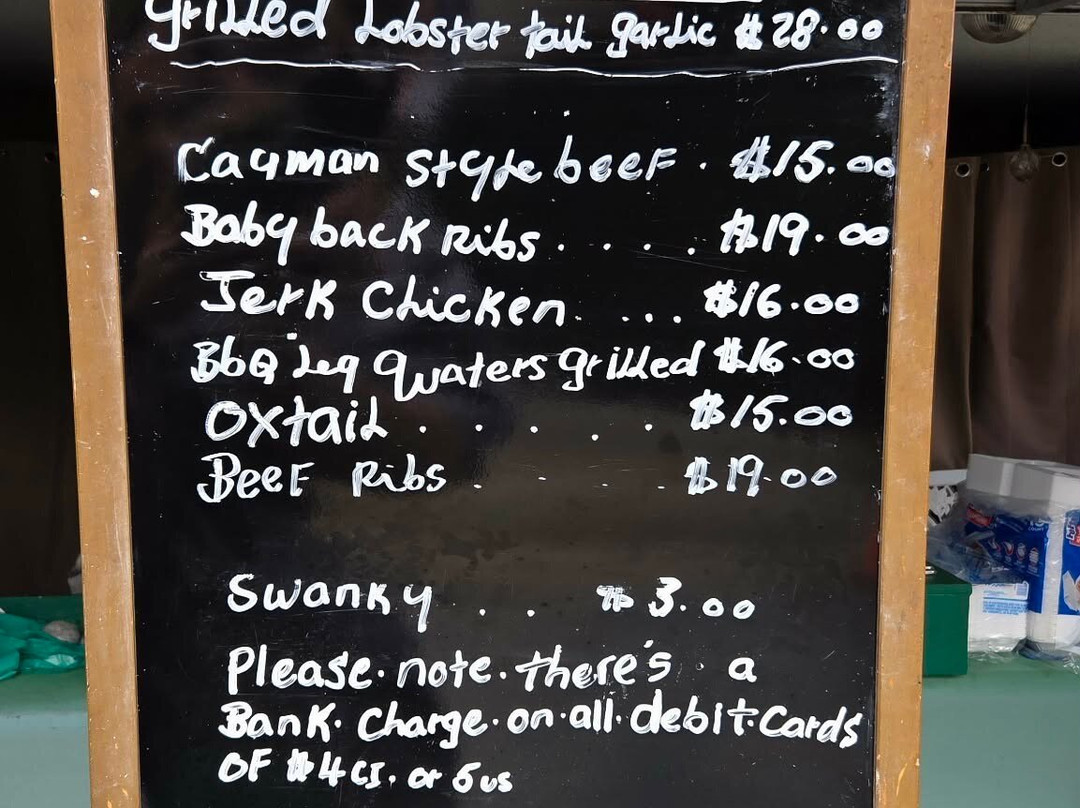 grilled Lobster tail garlic $28.00
Cayman style beef . $15.00
Baby back Ribs . . . . $19.00
Jerk Chicken . . . . $16.00
BbQ Leg Quaters grilled $16.00
Oxtail . . . . . $15.00
Beef Ribs . . . . $19.00
Swanky . . $3.00
Please. note. there's . a
Bank. Charge. on. all. debit. Cards
OF $4 CI. or 5 us